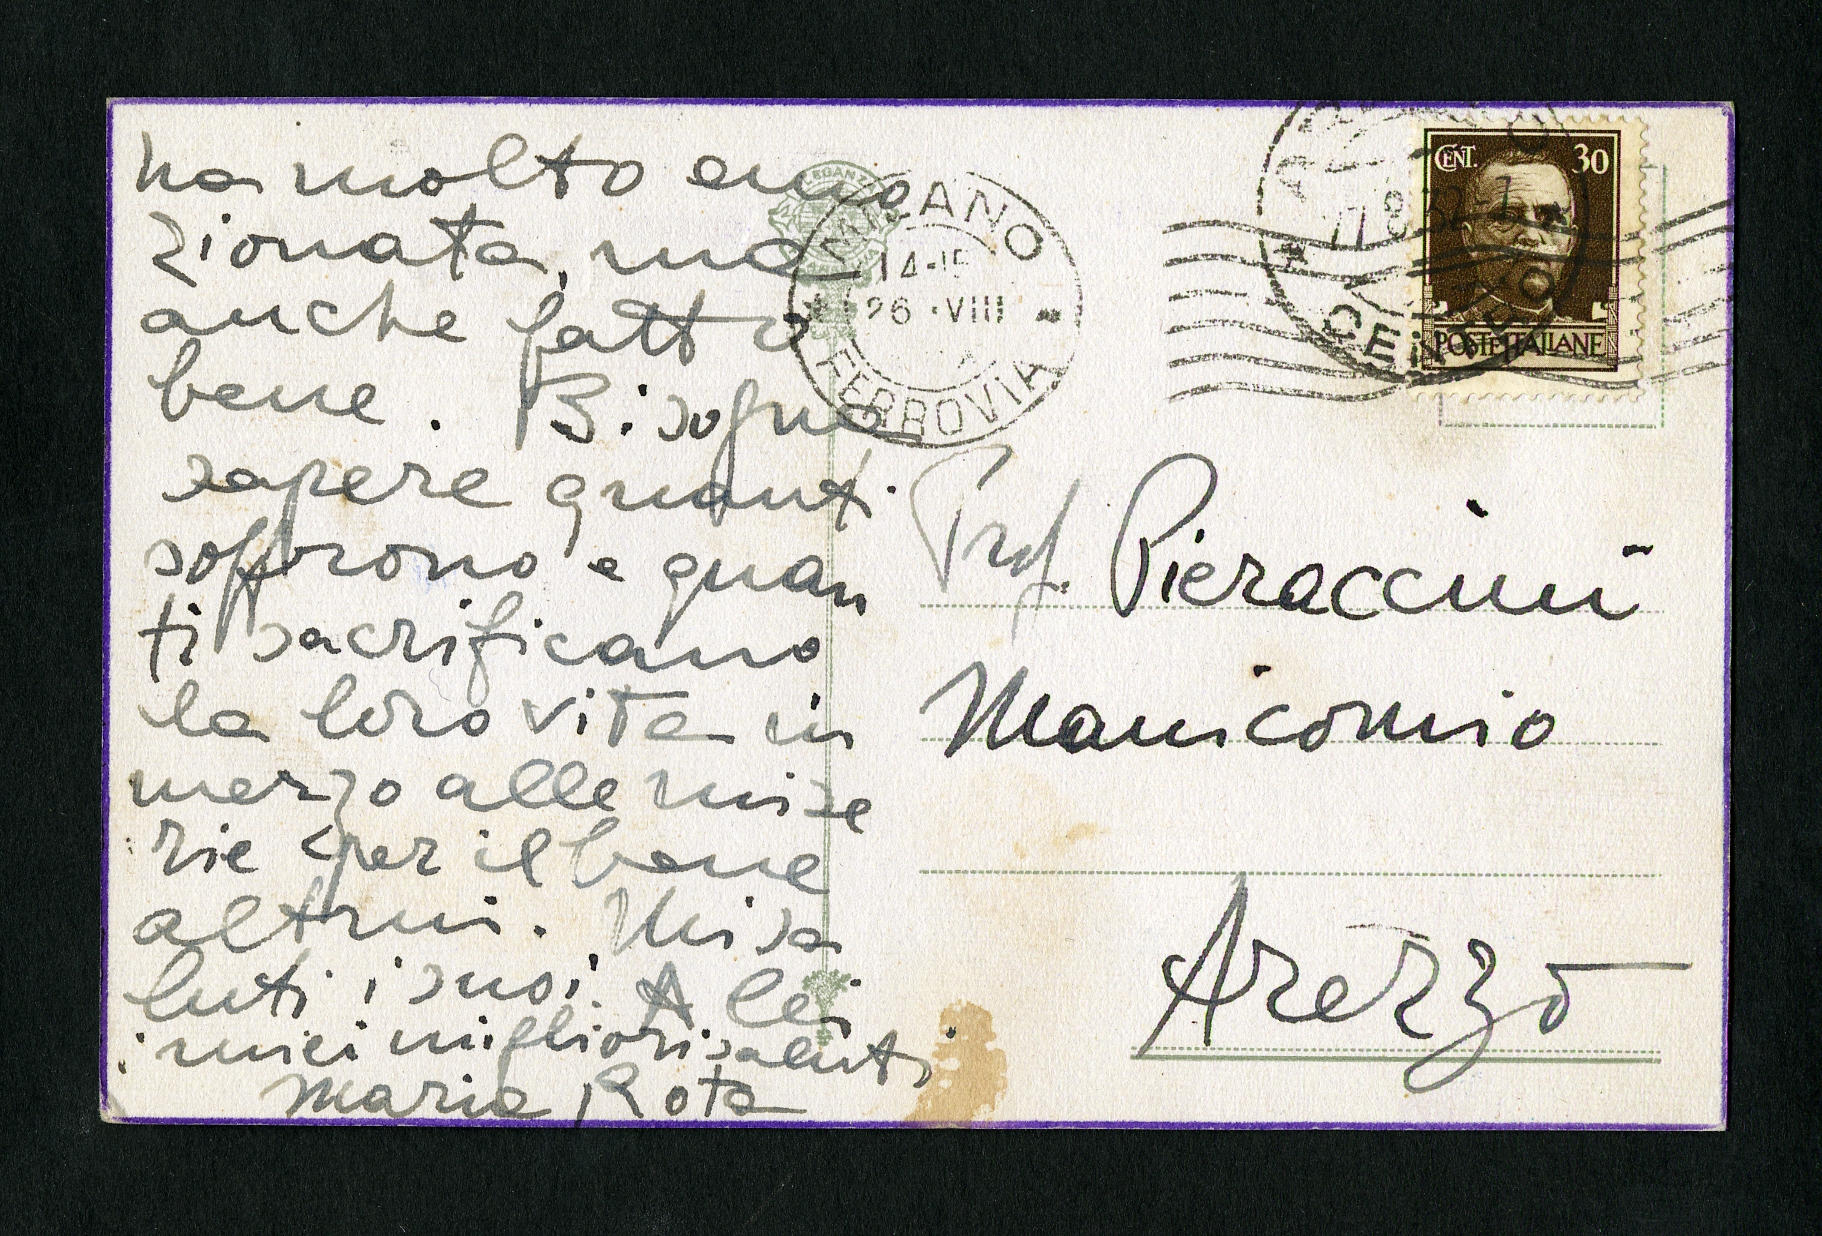 ha molto emo
zionata, ma
anche fatto
bene. Bisogna
sapere quanti
soffrono e quan
ti sacrificano
la loro vita in
mezzo alle mise
rie per il bene
altrui. Mi sa
luti i suoi. A lei
i miei migliori saluti
Maria Rota
MILANO
14-15
26 · VIII
FERROVIA
CENT. 30
POSTE ITALIANE
Prof. Pieraccini
Manicomio
Arezzo